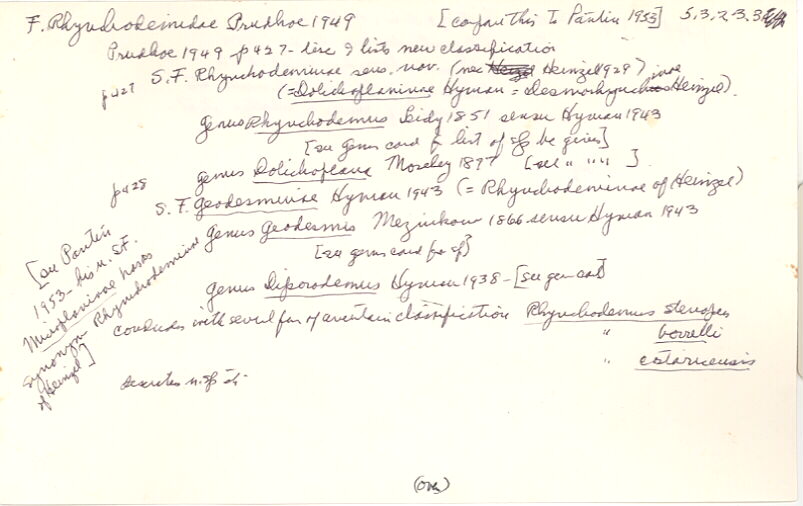 F. Rhynchodemidae Prudhoe 1949 [compare this To Pantin 1953] 5.3.2.3.3
Prudhoe 1949 p427 - disc & lists new classification
p427 S.F. Rhynchodeminae sens. nov. (nec Heinzel 1929)
(= Dolichoplaninae Hyman = Desmorhynchus Heinzel).
Genus Rhynchodemus Leidy 1851 sensu Hyman 1943
[see Genus card for list of sps he gives]
genus Dolichoplana Moseley 1877 [see " " " ].
p428 S.F. Geodesminae Hyman 1943 (= Rhynchodeminae of Heinzel)
genus Geodesmis Meznikow 1866 sensu Hyman 1943
[see genus card for sp]
genus Diporodemus Hyman 1938 - [see gen card]
concludes with several spp of uncertain classification Rhynchodemus stenopus
" borrelli
" cataricensis
describes n. sp
[see Pantin
1953 - his n. S.F.
Microplaninae has as
synonym Rhynchodeminae
of Heinzel]
(over)